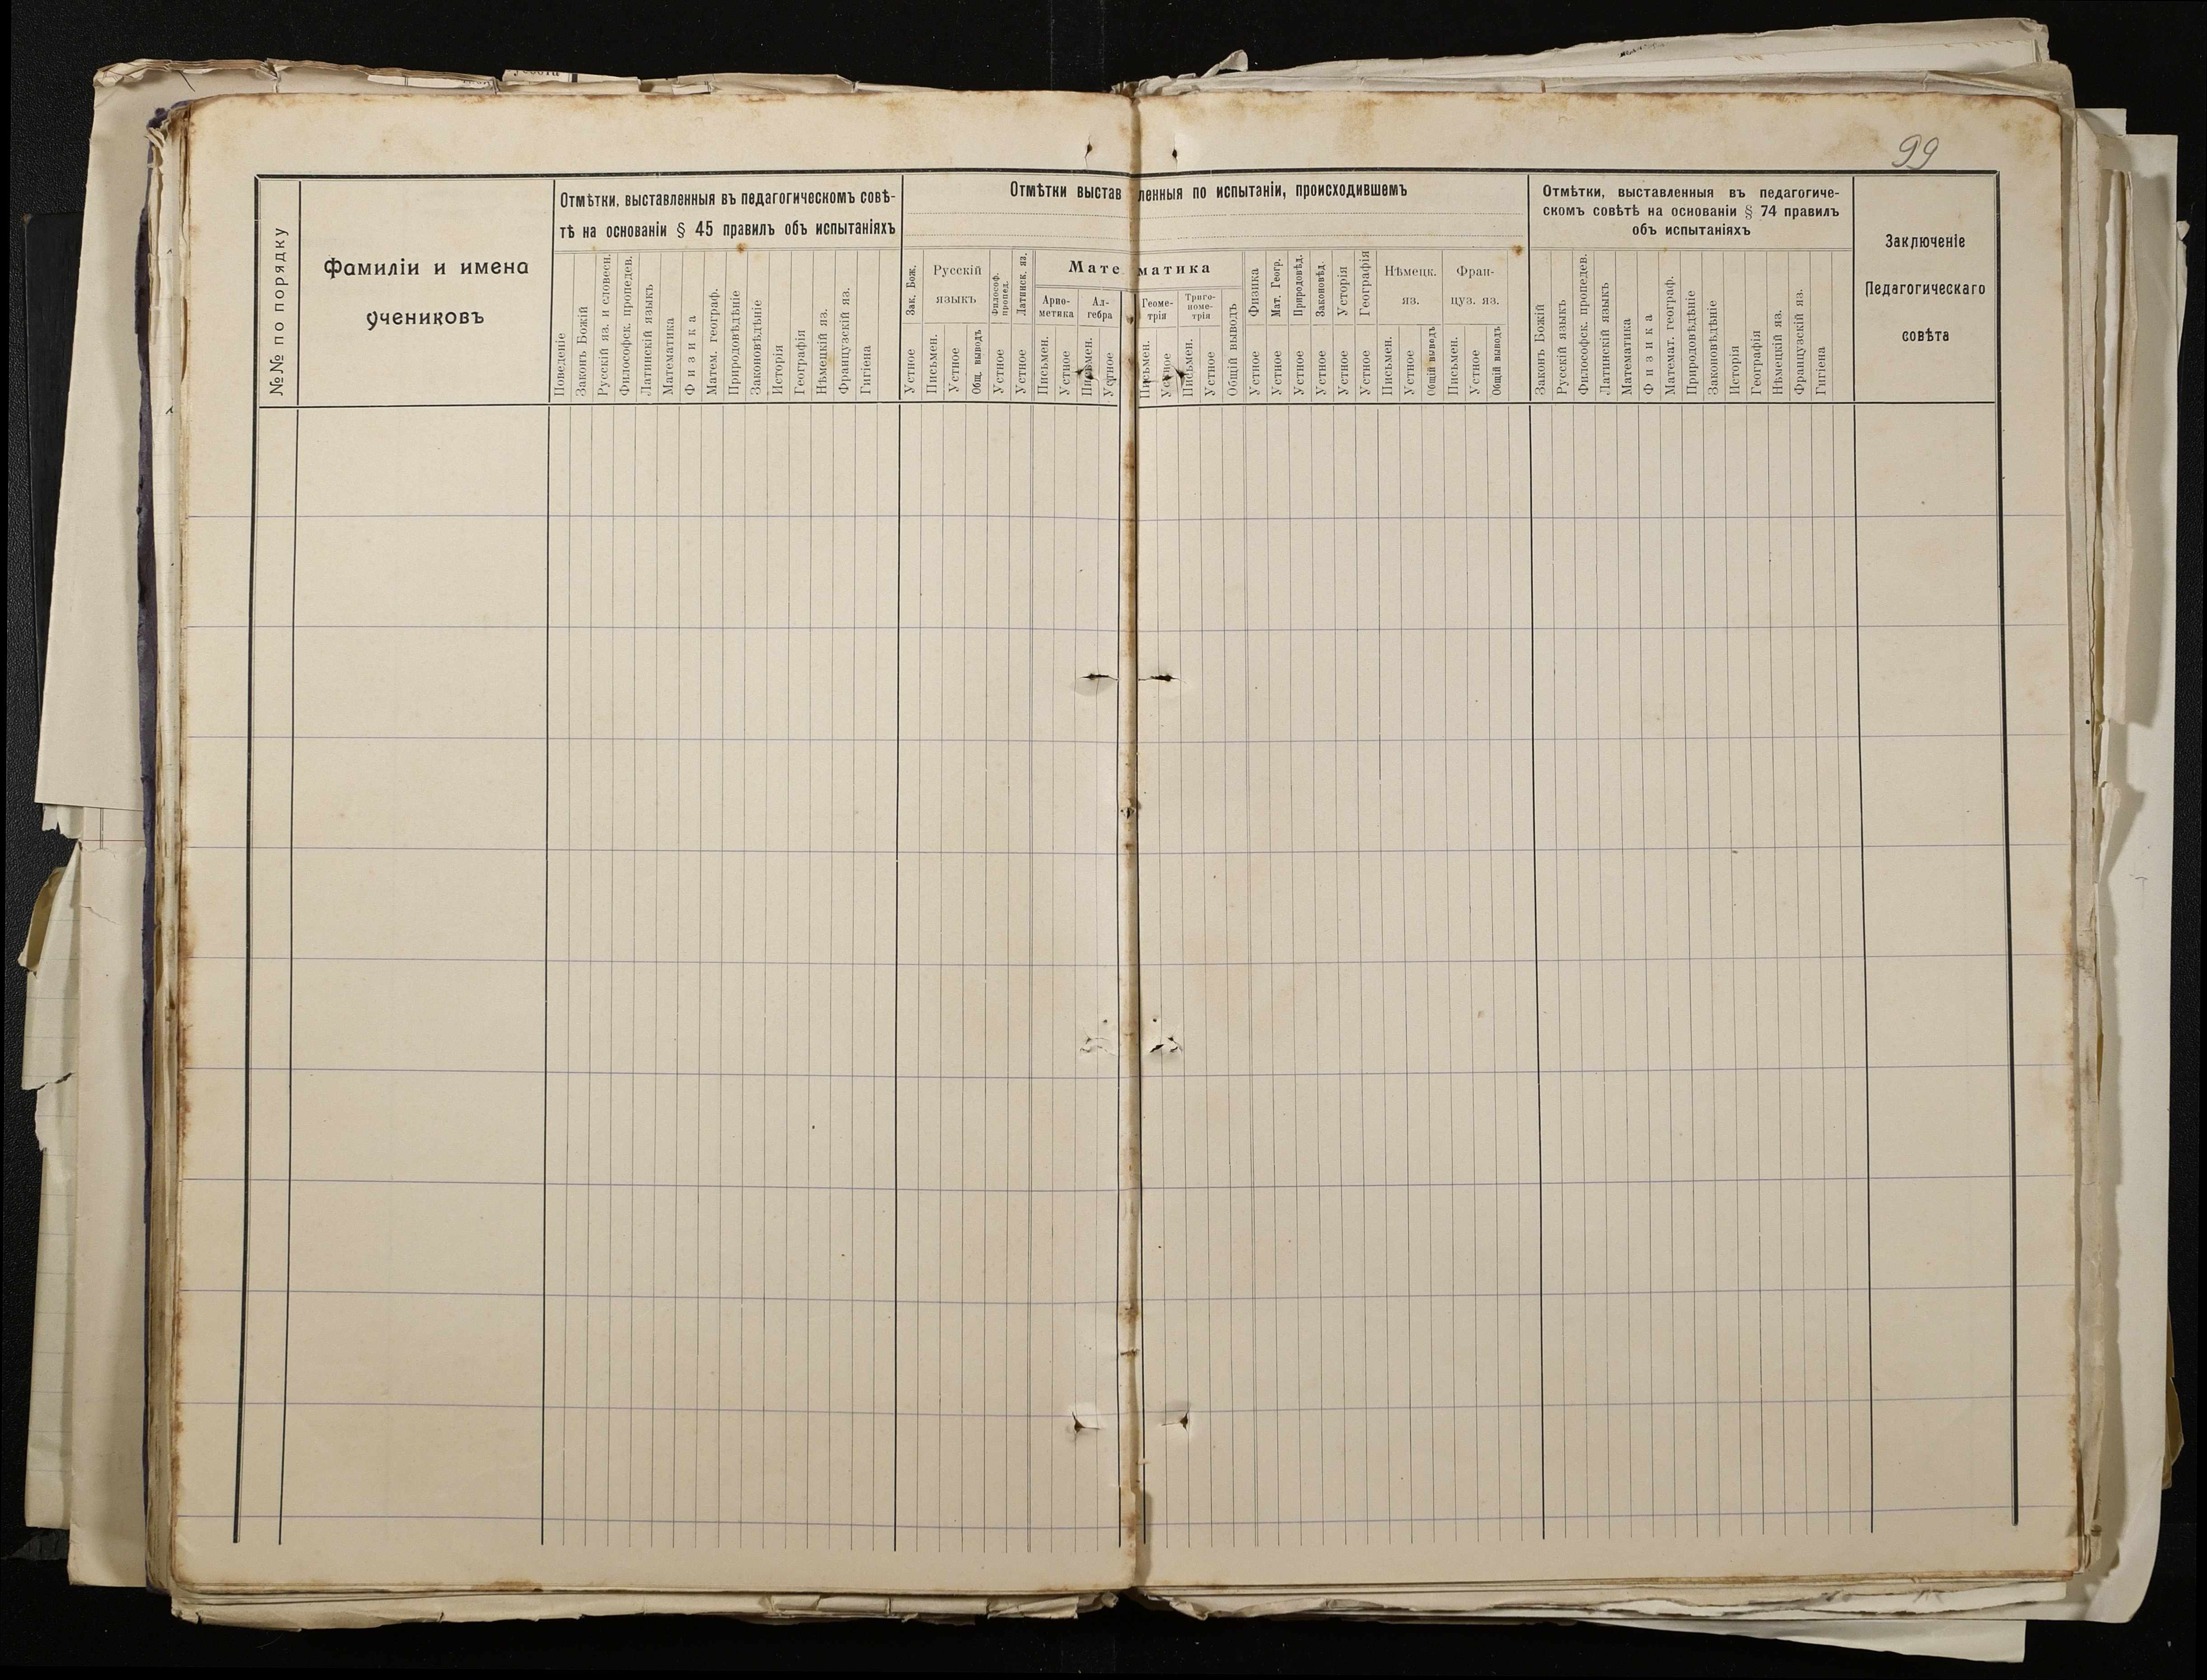 99
№№ по порядку
Фамиліи и имена
учениковъ
Отмѣтки, выставленныя въ педагогическомъ совѣ-
тѣ на основаніи § 45 правилъ объ испытаніяхъ
Поведеніе
Законъ Божій
Русскій яз. и словесн.
Философск. пропедев.
Латинскій языкъ
Математика
Физика
Матем. географ.
Природовѣдѣніе
Законовѣдѣніе
Исторія
Географія
Нѣмецкій яз.
Французскій яз.
Гигіена
Отмѣтки выставленныя по испытаніи, происходившемъ
Зак. Бож.
Устное
Русскій
языкъ
Письмен.
Устное
Общ. выводъ
Философ.
пропед.
Устное
Латинск. яз.
Устное
Математика
Ариѳ-
метика
Письмен.
Устное
Ал-
гебра
Письмен.
Устное
Геоме-
трія
Письмен.
Устное
Триго-
номе-
трія
Письмен.
Устное
Общій выводъ
Физика
Устное
Мат. Геогр.
Устное
Природовѣд.
Устное
Законовѣд.
Устное
Усторія
Устное
Географія
Устное
Нѣмецк.
яз.
Письмен.
Устное
Общій выводъ
Фран-
цуз. яз.
Письмен.
Устное
Общій выводъ
Отмѣтки, выставленныя въ педагогиче-
скомъ совѣтѣ на основаніи § 74 правилъ
объ испытаніяхъ
Законъ Божій
Русскій языкъ
Философск. пропедев.
Латинскій языкъ
Математика
Физика
Математ. географ.
Природовѣдѣніе
Законовѣдѣніе
Исторія
Географія
Нѣмецкій яз.
Французскій яз.
Гигіена
Заключеніе
Педагогическаго
совѣта